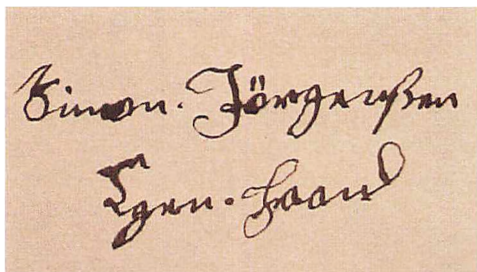 Simon. Jörgenßen
Egen. Haand